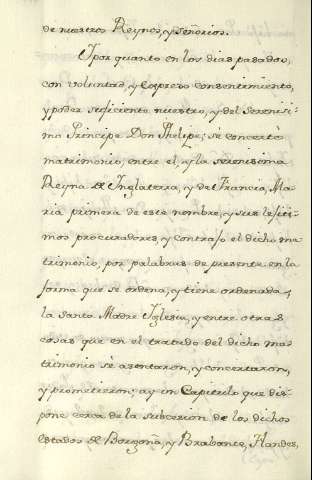 de nuestros Reynos, y señorios.
Y por quanto en los dias pasados,
con voluntad, y expreso consentimiento,
y poder suficiente nuestro, y del Serenisi-
mo Principe Don Phelipe; se concertò
matrimonio, entre el, y la serenisima
Reyna de Inglaterra, y de Francia, Ma-
ria primera de este nombre, y sus lexiti-
mos procuradores, y contrajo el dicho ma-
trimonio, por palabras de presente en la
forma que se ordena, y tiene ordenada,
la Santa Madre Iglesia, y entre otras
cosas que en el tratado del dicho ma-
trimonio se asentaron, y concertaron,
y prometieron; ay un Capitulo que dis-
pone cerca de la subcesion de los dichos
estados de Borgoña, y Brabante, Flandes,